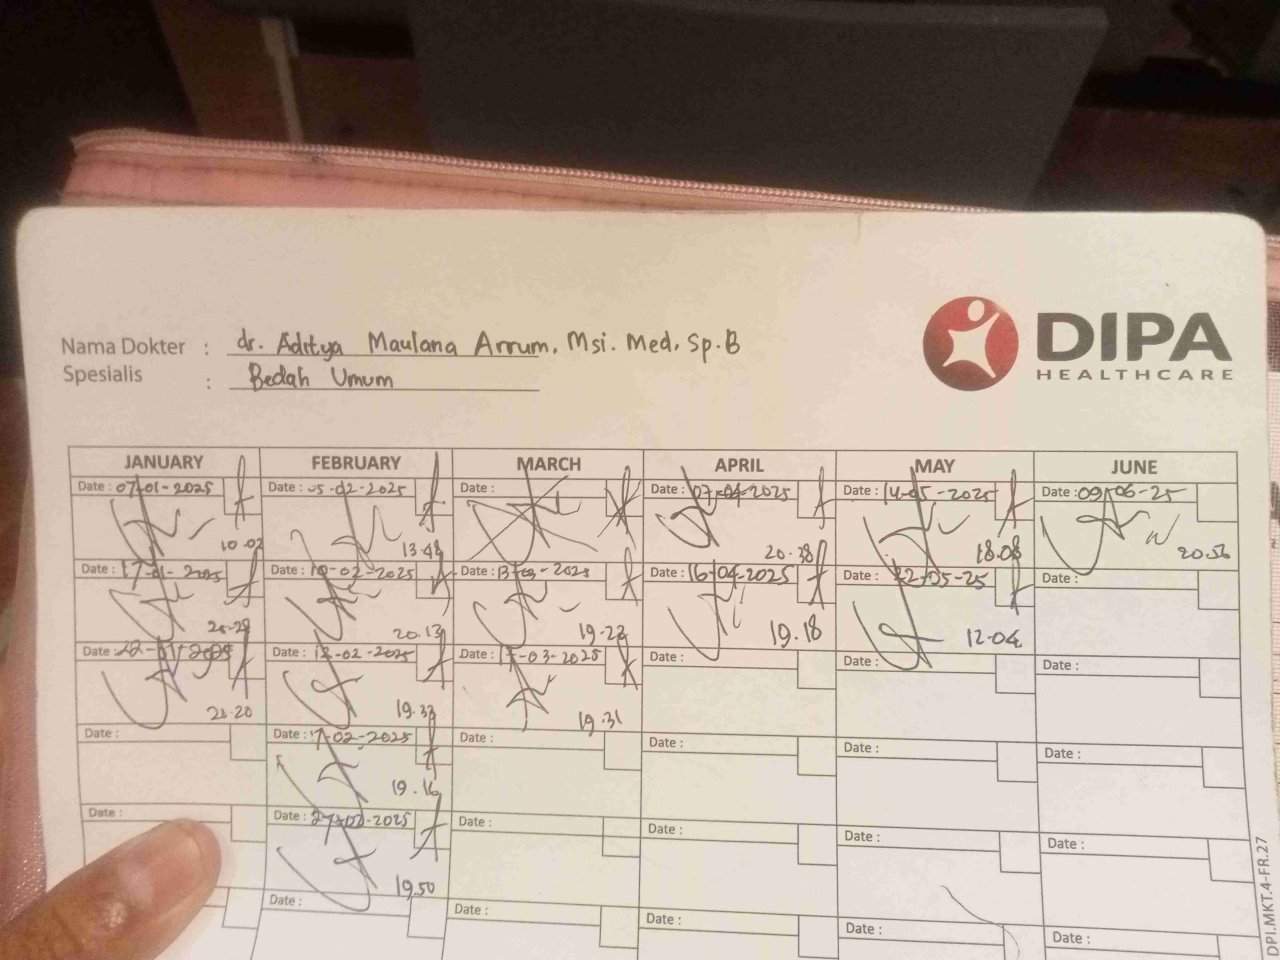 DIPA
HEALTHCARE
Nama Dokter : dr. Aditya Maulana Arrum, Msi. Med, Sp.B
Spesialis : Bedah Umum
JANUARY FEBRUARY MARCH APRIL MAY JUNE
Date : 07-01-2025 Date : 05-02-2025 Date : Date : 07-04-2025 Date : 14-05-2025 Date : 09-06-25
10.02 13.48 20.38 18.08 20.56
Date : 17-01-2025 Date : 10-02-2025 Date : 13-03-2025 Date : 16-04-2025 Date : 22-05-25 Date :
20.13 19.22 19.18 12.04
Date : 22-01-2025 Date : 12-02-2025 Date : 17-03-2025 Date : Date : Date :
20.20 19.33 19.31
Date : Date : 17-02-2025 Date : Date : Date : Date :
19.16
Date : Date : 27-02-2025 Date : Date : Date : Date :
19.50
Date : Date : Date : Date : Date :
DPI.MKT.4-FR.27